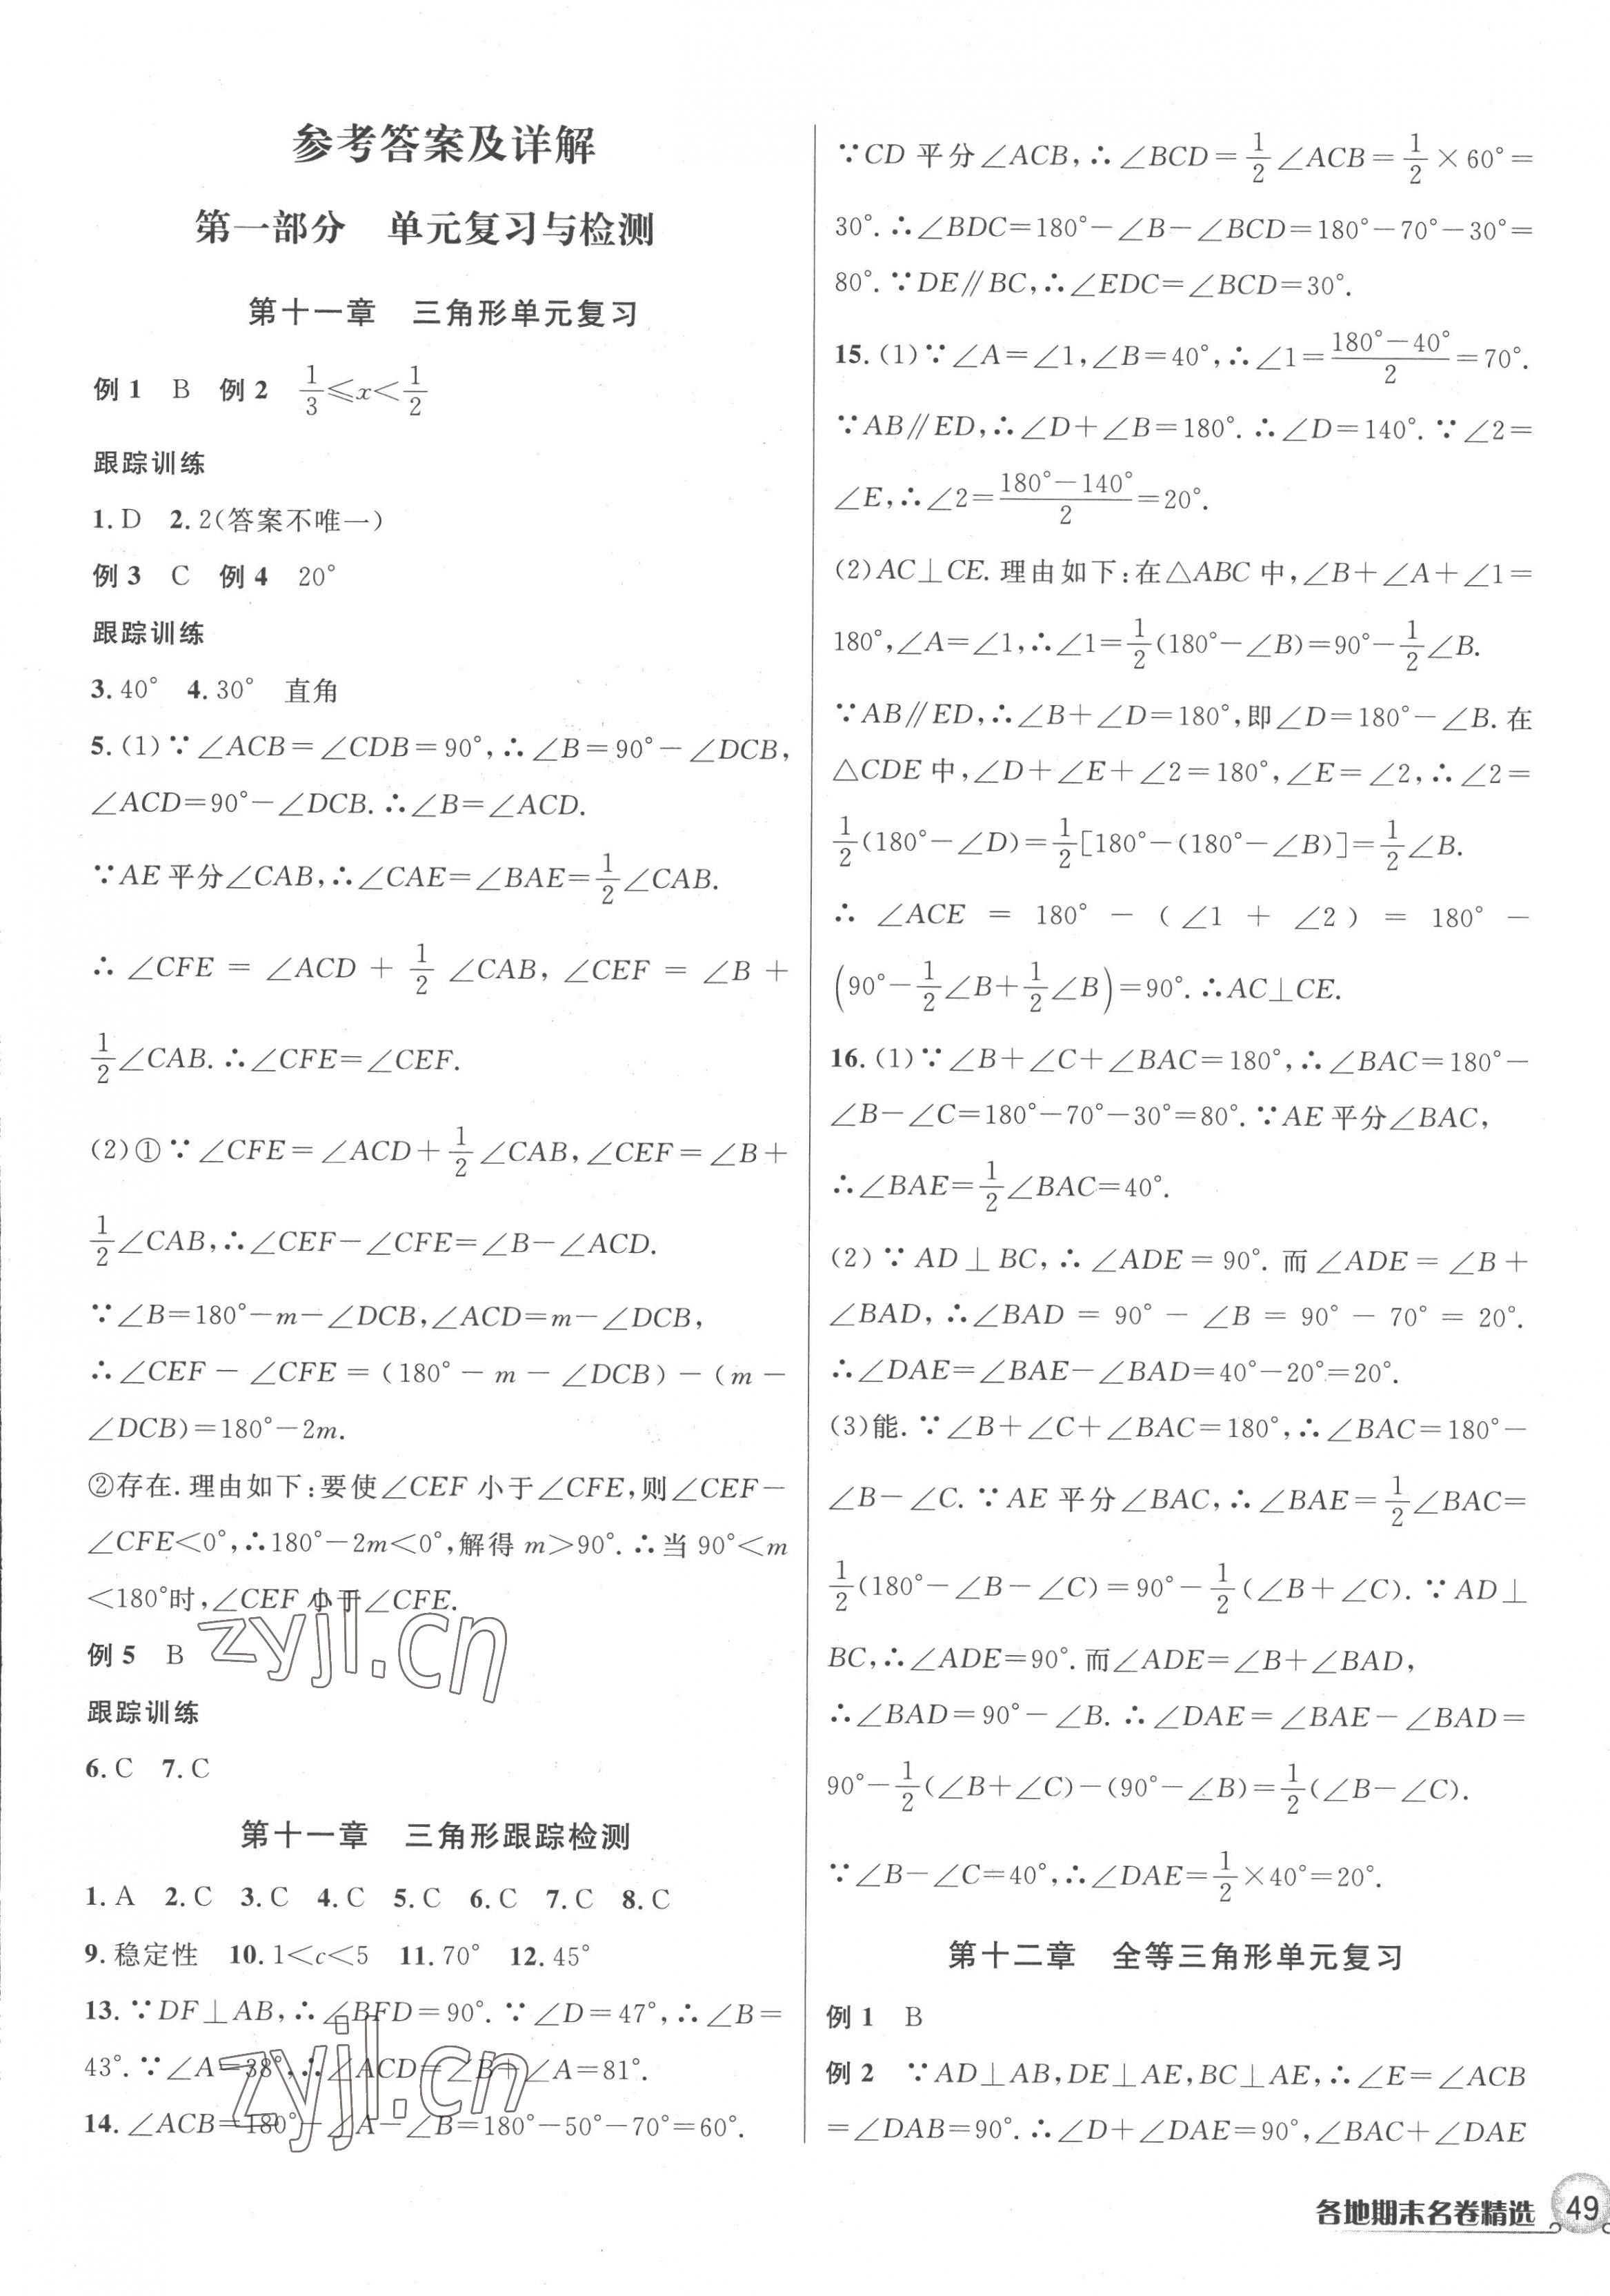 参考答案及详解
第一部分　单元复习与检测
第十一章　三角形单元复习
例1　B　例2　1/3≤x<1/2
跟踪训练
1.D　2.2(答案不唯一)
例3　C　例4　20°
跟踪训练
3.40°　4.30°　直角
5.(1)∵∠ACB=∠CDB=90°,∴∠B=90°-∠DCB,
∠ACD=90°-∠DCB.∴∠B=∠ACD.
∵AE平分∠CAB,∴∠CAE=∠BAE=1/2∠CAB.
∴∠CFE=∠ACD+1/2∠CAB,∠CEF=∠B+
1/2∠CAB.∴∠CFE=∠CEF.
(2)①∵∠CFE=∠ACD+1/2∠CAB,∠CEF=∠B+
1/2∠CAB,∴∠CEF-∠CFE=∠B-∠ACD.
∵∠B=180°-m-∠DCB,∠ACD=m-∠DCB,
∴∠CEF-∠CFE=(180°-m-∠DCB)-(m-
∠DCB)=180°-2m.
②存在.理由如下:要使∠CEF小于∠CFE,则∠CEF-
∠CFE<0°,∴180°-2m<0°,解得m>90°.∴当90°<m
<180°时,∠CEF小于∠CFE.
例5　B
跟踪训练
6.C　7.C
第十一章　三角形跟踪检测
1.A　2.C　3.C　4.C　5.C　6.C　7.C　8.C
9.稳定性　10.1<c<5　11.70°　12.45°
13.∵DF⊥AB,∴∠BFD=90°.∵∠D=47°,∴∠B=
43°.∵∠A=38°,∴∠ACD=∠B+∠A=81°.
14.∠ACB=180°-∠A-∠B=180°-50°-70°=60°.
∵CD平分∠ACB,∴∠BCD=1/2∠ACB=1/2×60°=
30°.∴∠BDC=180°-∠B-∠BCD=180°-70°-30°=
80°.∵DE∥BC,∴∠EDC=∠BCD=30°.
15.(1)∵∠A=∠1,∠B=40°,∴∠1=(180°-40°)/2=70°.
∵AB∥ED,∴∠D+∠B=180°.∴∠D=140°.∵∠2=
∠E,∴∠2=(180°-140°)/2=20°.
(2)AC⊥CE.理由如下:在△ABC中,∠B+∠A+∠1=
180°,∠A=∠1,∴∠1=1/2(180°-∠B)=90°-1/2∠B.
∵AB∥ED,∴∠B+∠D=180°,即∠D=180°-∠B.在
△CDE中,∠D+∠E+∠2=180°,∠E=∠2,∴∠2=
1/2(180°-∠D)=1/2[180°-(180°-∠B)]=1/2∠B.
∴∠ACE=180°-(∠1+∠2)=180°-
(90°-1/2∠B+1/2∠B)=90°.∴AC⊥CE.
16.(1)∵∠B+∠C+∠BAC=180°,∴∠BAC=180°-
∠B-∠C=180°-70°-30°=80°.∵AE平分∠BAC,
∴∠BAE=1/2∠BAC=40°.
(2)∵AD⊥BC,∴∠ADE=90°.而∠ADE=∠B+
∠BAD,∴∠BAD=90°-∠B=90°-70°=20°.
∴∠DAE=∠BAE-∠BAD=40°-20°=20°.
(3)能.∵∠B+∠C+∠BAC=180°,∴∠BAC=180°-
∠B-∠C.∵AE平分∠BAC,∴∠BAE=1/2∠BAC=
1/2(180°-∠B-∠C)=90°-1/2(∠B+∠C).∵AD⊥
BC,∴∠ADE=90°.而∠ADE=∠B+∠BAD,
∴∠BAD=90°-∠B.∴∠DAE=∠BAE-∠BAD=
90°-1/2(∠B+∠C)-(90°-∠B)=1/2(∠B-∠C).
∵∠B-∠C=40°,∴∠DAE=1/2×40°=20°.
第十二章　全等三角形单元复习
例1　B
例2　∵AD⊥AB,DE⊥AE,BC⊥AE,∴∠E=∠ACB
=∠DAB=90°.∴∠D+∠DAE=90°,∠BAC+∠DAE
各地期末名卷精选　49
zyjl.cn
zyjl.cn